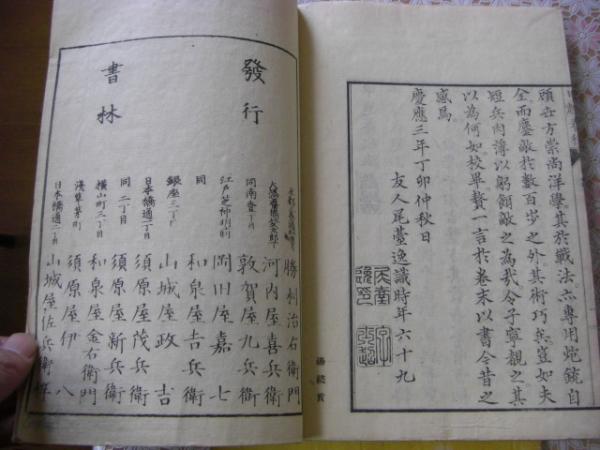 頃世方崇尚洋學其於戰法亦專用炮銃自
全而鏖敵於數百步之外其術巧矣豈如夫
短兵肉薄以躬餌敵之為哉令子寧親之其
以為何如校畢贅一言於卷末以書今昔之
感焉
慶應三年丁卯仲秋日
友人尾臺逸識時年六十九
發行
書林
勝村治右衞門
河内屋喜兵衞
同
敦賀屋九兵衞
江戸芝神明前
岡田屋嘉七
同
和泉屋吉兵衞
銀座三丁目
山城屋政吉
日本橋通一丁目
須原屋茂兵衞
同二丁目
須原屋新兵衞
横山町三丁目
和泉屋金右衞門
淺草茅町
須原屋伊八
日本橋通二丁目
山城屋佐兵衞